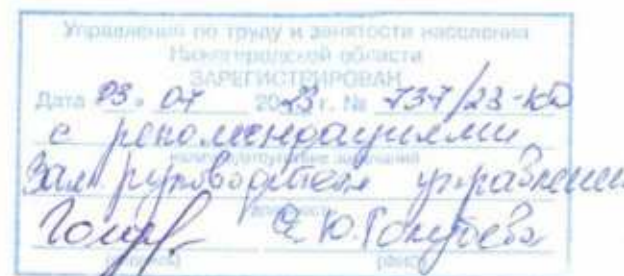 Управление по труду и занятости населения
Нижегородской области
ЗАРЕГИСТРИРОВАН
Дата 03 » 07 2023 г. № 737/23-КД
с рекомендациями
Зам. руководителя управления
(подпись) (ФИО)